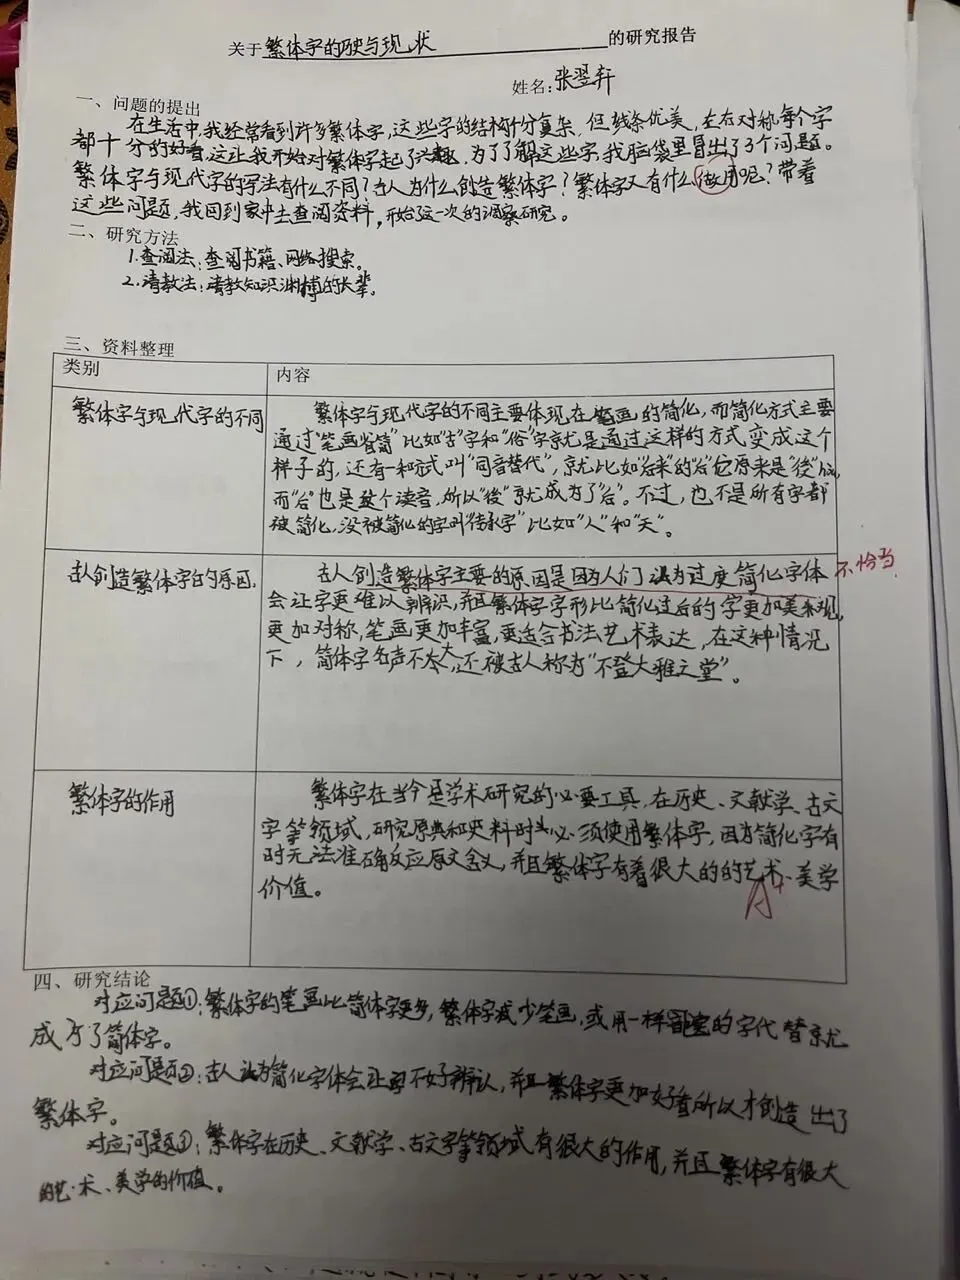 关于繁体字的历史与现状的研究报告
姓名:张翌轩
一、问题的提出
在生活中,我经常看到许多繁体字,这些字的结构十分复杂,但线条优美,左右对称,每个字
都十分的好看,这让我开始对繁体字起了兴趣,为了了解这些字,我脑袋里冒出了3个问题。
繁体字与现代字的写法有什么不同?古人为什么创造繁体字?繁体字又有什么做用呢?带着
这些问题,我回到家中去查阅资料,开始了这一次的调察研究。
二、研究方法
1.查阅法:查阅书籍、网络搜索。
2.请教法:请教知识渊博的长辈。
三、资料整理
类别
内容
繁体字与现代字的不同
繁体字与现代字的不同主要体现在笔画的简化,而简化方式主要
通过"笔画省简"比如"古"字和"俗"字就是通过这样的方式变成这个
样子的,还有一种方式叫"同音替代",就比如"后来"的"后"它原来是"後"
而"后"也是这个读音,所以"後"就成为了"后"。不过,也不是所有字都
被简化,没被简化的字叫"传承字"比如"人"和"天"。
古人创造繁体字的原因.
古人创造繁体字主要的原因是因为人们认为过度简化字体
不恰当
会让字更难以辨识,并且繁体字字形比简化过后的字更加美观,
更加对称,笔画更加丰富,更适合书法艺术表达,在这种情况
下,简体字名声不太大,还被古人称为"不登大雅之堂"。
繁体字的作用
繁体字在当今是学术研究的必要工具,在历史、文献学、古文
字等领域,研究原典和史料时必须使用繁体字,因为简化字有
时无法准确反应原文含义,并且繁体字有着很大的的艺术、美学
价值。
A+
四、研究结论
对应问题①:繁体字的笔画比简体字更多,繁体字减少笔画,或用一样读音的字代替就
成为了简体字。
对应问题②:古人认为简化字体会让字不好辨认,并且繁体字更加好看所以才创造出了
繁体字。
对应问题③:繁体字在历史、文献学、古文字等领域有很大的作用,并且繁体字有很大
的艺术、美学的价值。